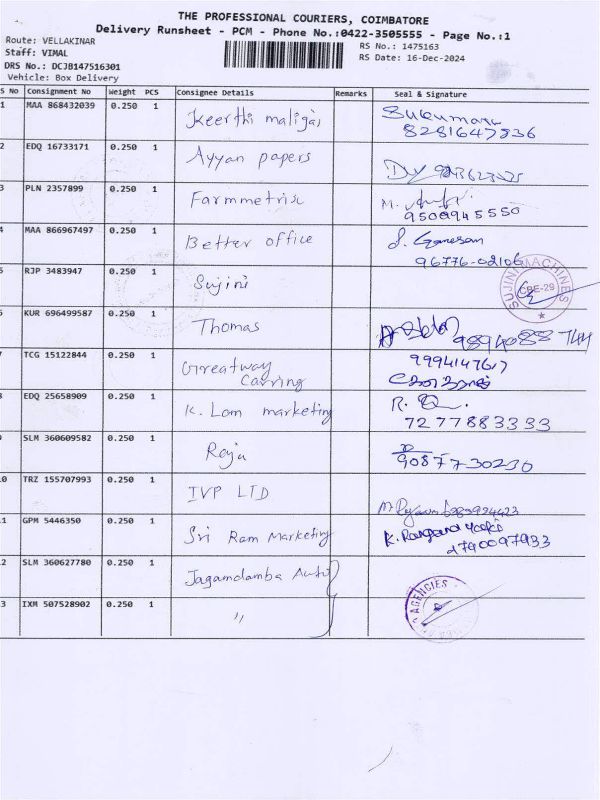 THE PROFESSIONAL COURIERS, COIMBATORE
Delivery Runsheet - PCM - Phone No.:0422-3505555 - Page No.:1
Route: VELLAKINAR
RS No.: 1475163
Staff: VIMAL
RS Date: 16-Dec-2024
DRS No.: DCJB147516301
Vehicle: Box Delivery
S No Consignment No Weight PCS Consignee Details Remarks Seal & Signature
1 MAA 868432039 0.250 1 Keerthi maligai
8281647836
2 EDQ 16733171 0.250 1 Ayyan papers
3 PLN 2357899 0.250 1 Farmmetrix
9500945550
4 MAA 866967497 0.250 1 Better office S. Ganesan
96776-02106
5 RJP 3483947 0.250 1 Sujini
SUJINI MACHINES
CBE-29
6 KUR 696499587 0.250 1 Thomas
9894088744
7 TCG 15122844 0.250 1 Greatway
Carring
8 EDQ 25658909 0.250 1 K. Lom marketing
7277883333
9 SLM 360609582 0.250 1 Raja
9087730230
10 TRZ 155707993 0.250 1 IVP LTD
11 GPM 5446350 0.250 1 Sri Ram Marketing
8790097933
12 SLM 360627780 0.250 1 Jagamdamba Auto
AGENCIES
13 IXM 507528902 0.250 1 "